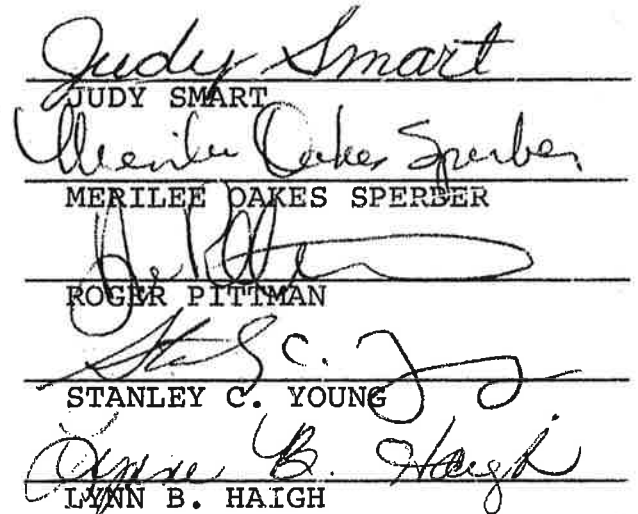 Judy Smart
JUDY SMART
Merilee Oakes Sperber
MERILEE OAKES SPERBER
ROGER PITTMAN
Stanley C. Young
STANLEY C. YOUNG
Lynn B. Haigh
LYNN B. HAIGH